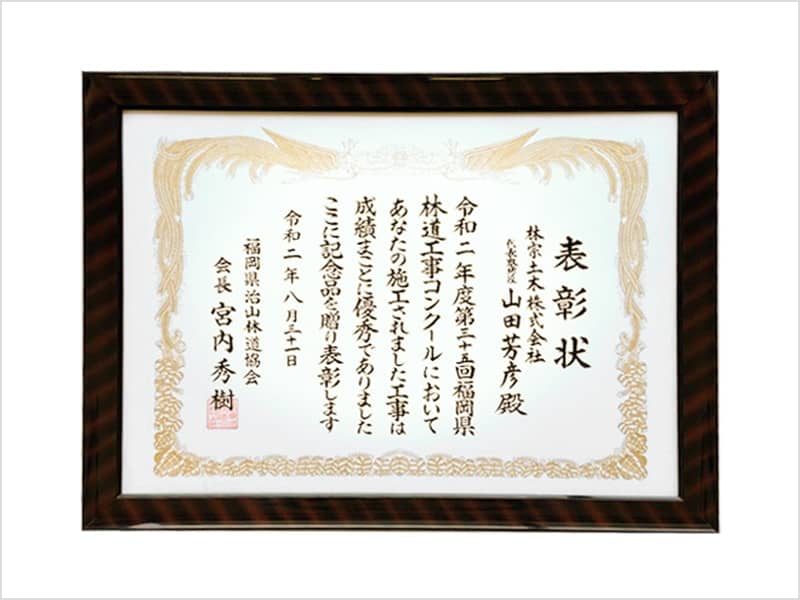 表彰状
林宗土木株式会社
代表取締役 山田芳彦殿
令和二年度第三十五回福岡県
林道工事コンクールにおいて
あなたの施工されました工事は
成績まことに優秀でありました
ここに記念品を贈り表彰します
令和二年八月三十一日
福岡県治山林道協会
会長 宮内秀樹